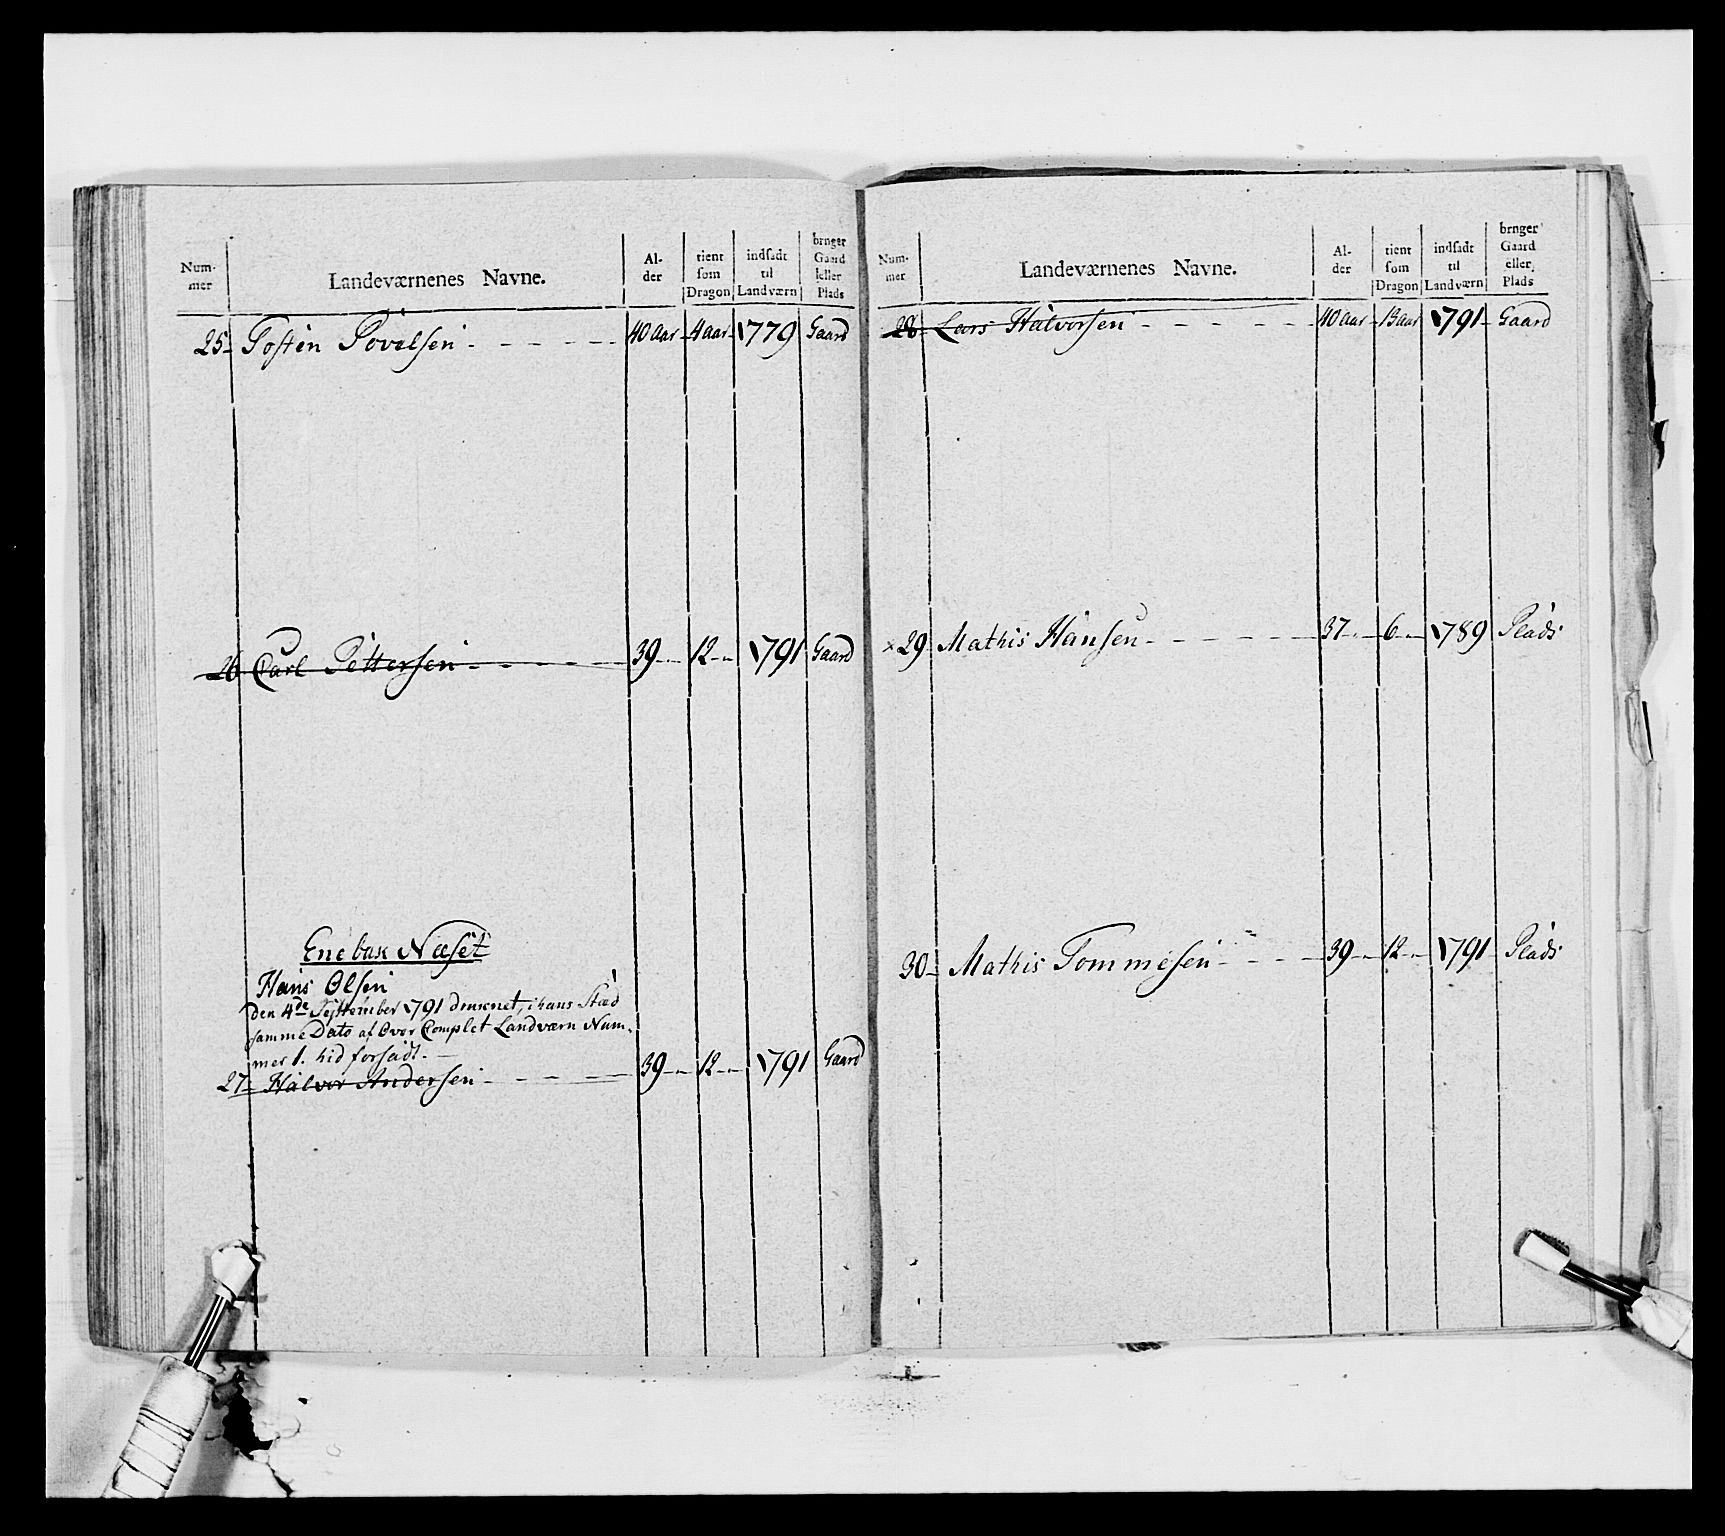 Num-
mer
Landeværnenes Navne.
Al-
der
tient
som
Dragon
indsadt
til
Landværn
bruger
Gaard
eller
Plads
25 Tosten Povelsen 40 aar 4 aar 1779 Gaard
26 Carl Pettersen 39 12 1791 Gaard
Enebak Næset
Hans Olsen
den 4de Septtember 1791 druknet, i hans Stæd
samme Dato af Over Complet Landværn Num-
mer 1. hid forsadt.
27 Halvor Andersen 39 12 1791 Gaard
Num-
mer
Landeværnenes Navne.
Al-
der
tient
som
Dragon
indsadt
til
Landværn
bruger
Gaard
eller
Plads
28 Lars Halvorsen 40 aar 13 aar 1791 Gaard
× 29 Mathis Hansen 37 6 1789 Plads
30 Mathis Tommesen 39 12 1791 Plads